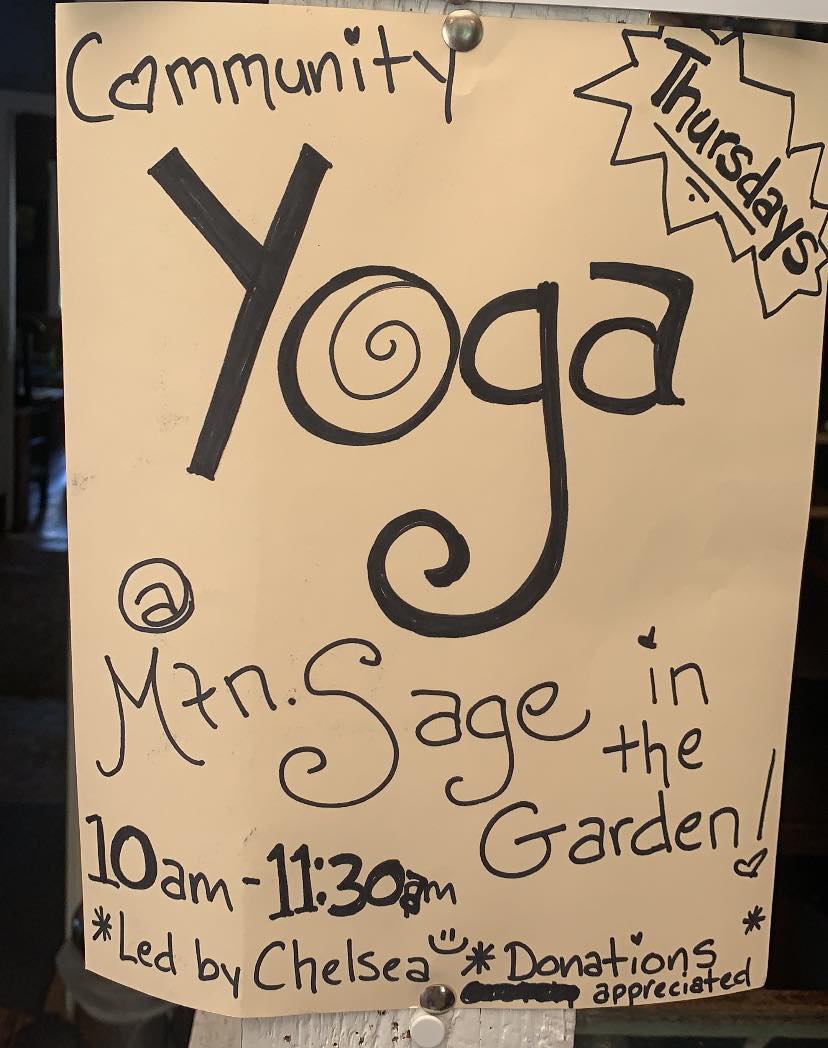 Community
Thursdays
Yoga
@
Mtn. Sage in
the
Garden!
10am - 11:30am
*Led by Chelsea * Donations *
appreciated